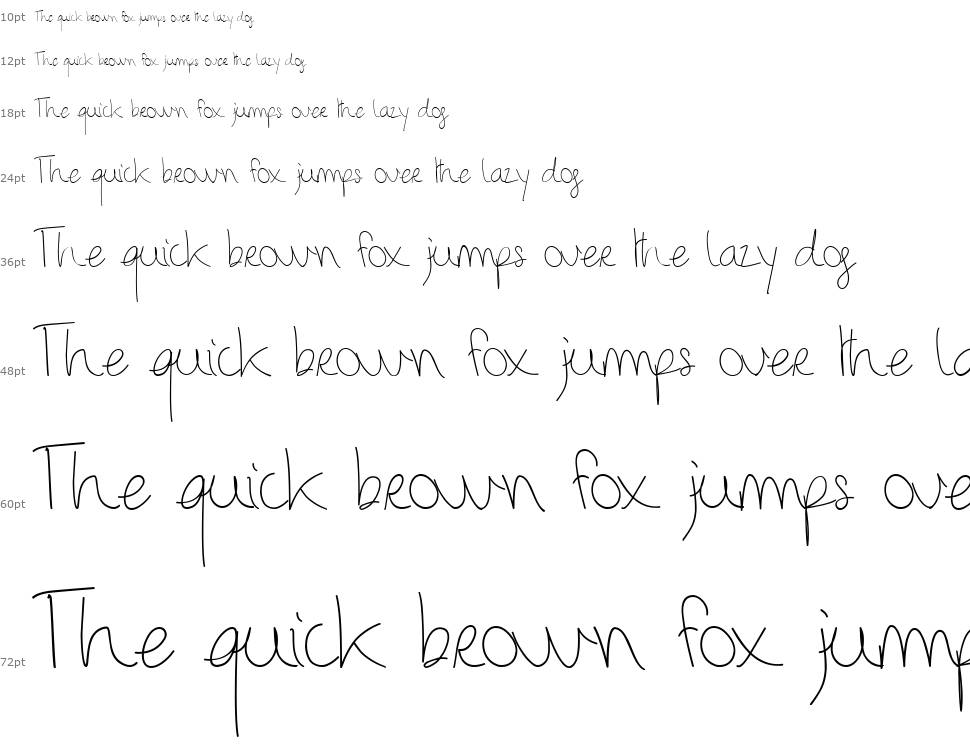 10pt The quick brown fox jumps over the lazy dog
12pt The quick brown fox jumps over the lazy dog
18pt The quick brown fox jumps over the lazy dog
24pt The quick brown fox jumps over the lazy dog
36pt The quick brown fox jumps over the lazy dog
48pt The quick brown fox jumps over the la
60pt The quick brown fox jumps ove
72pt The quick brown fox jump